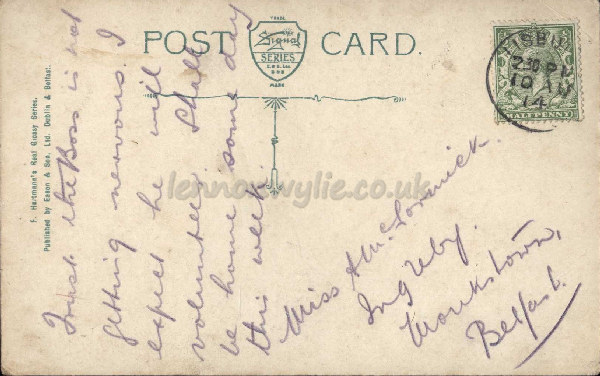 POST CARD.
TRADE
Signal
SERIES
E & S Ltd.
D & B
MARK
LISBURN
2:30 PM
10 AU
14
HALFPENNY
F. Hartmann's Real Glossy Series.
Published by Eason & Son, Ltd. Dublin & Belfast.
Trust the Boss is not
getting nervous. I
expect he will
volunteer. Shall
be home some day
this week.
Miss A McCormick.
Ingleby.
Monkstown,
Belfast.
lennonwylie.co.uk